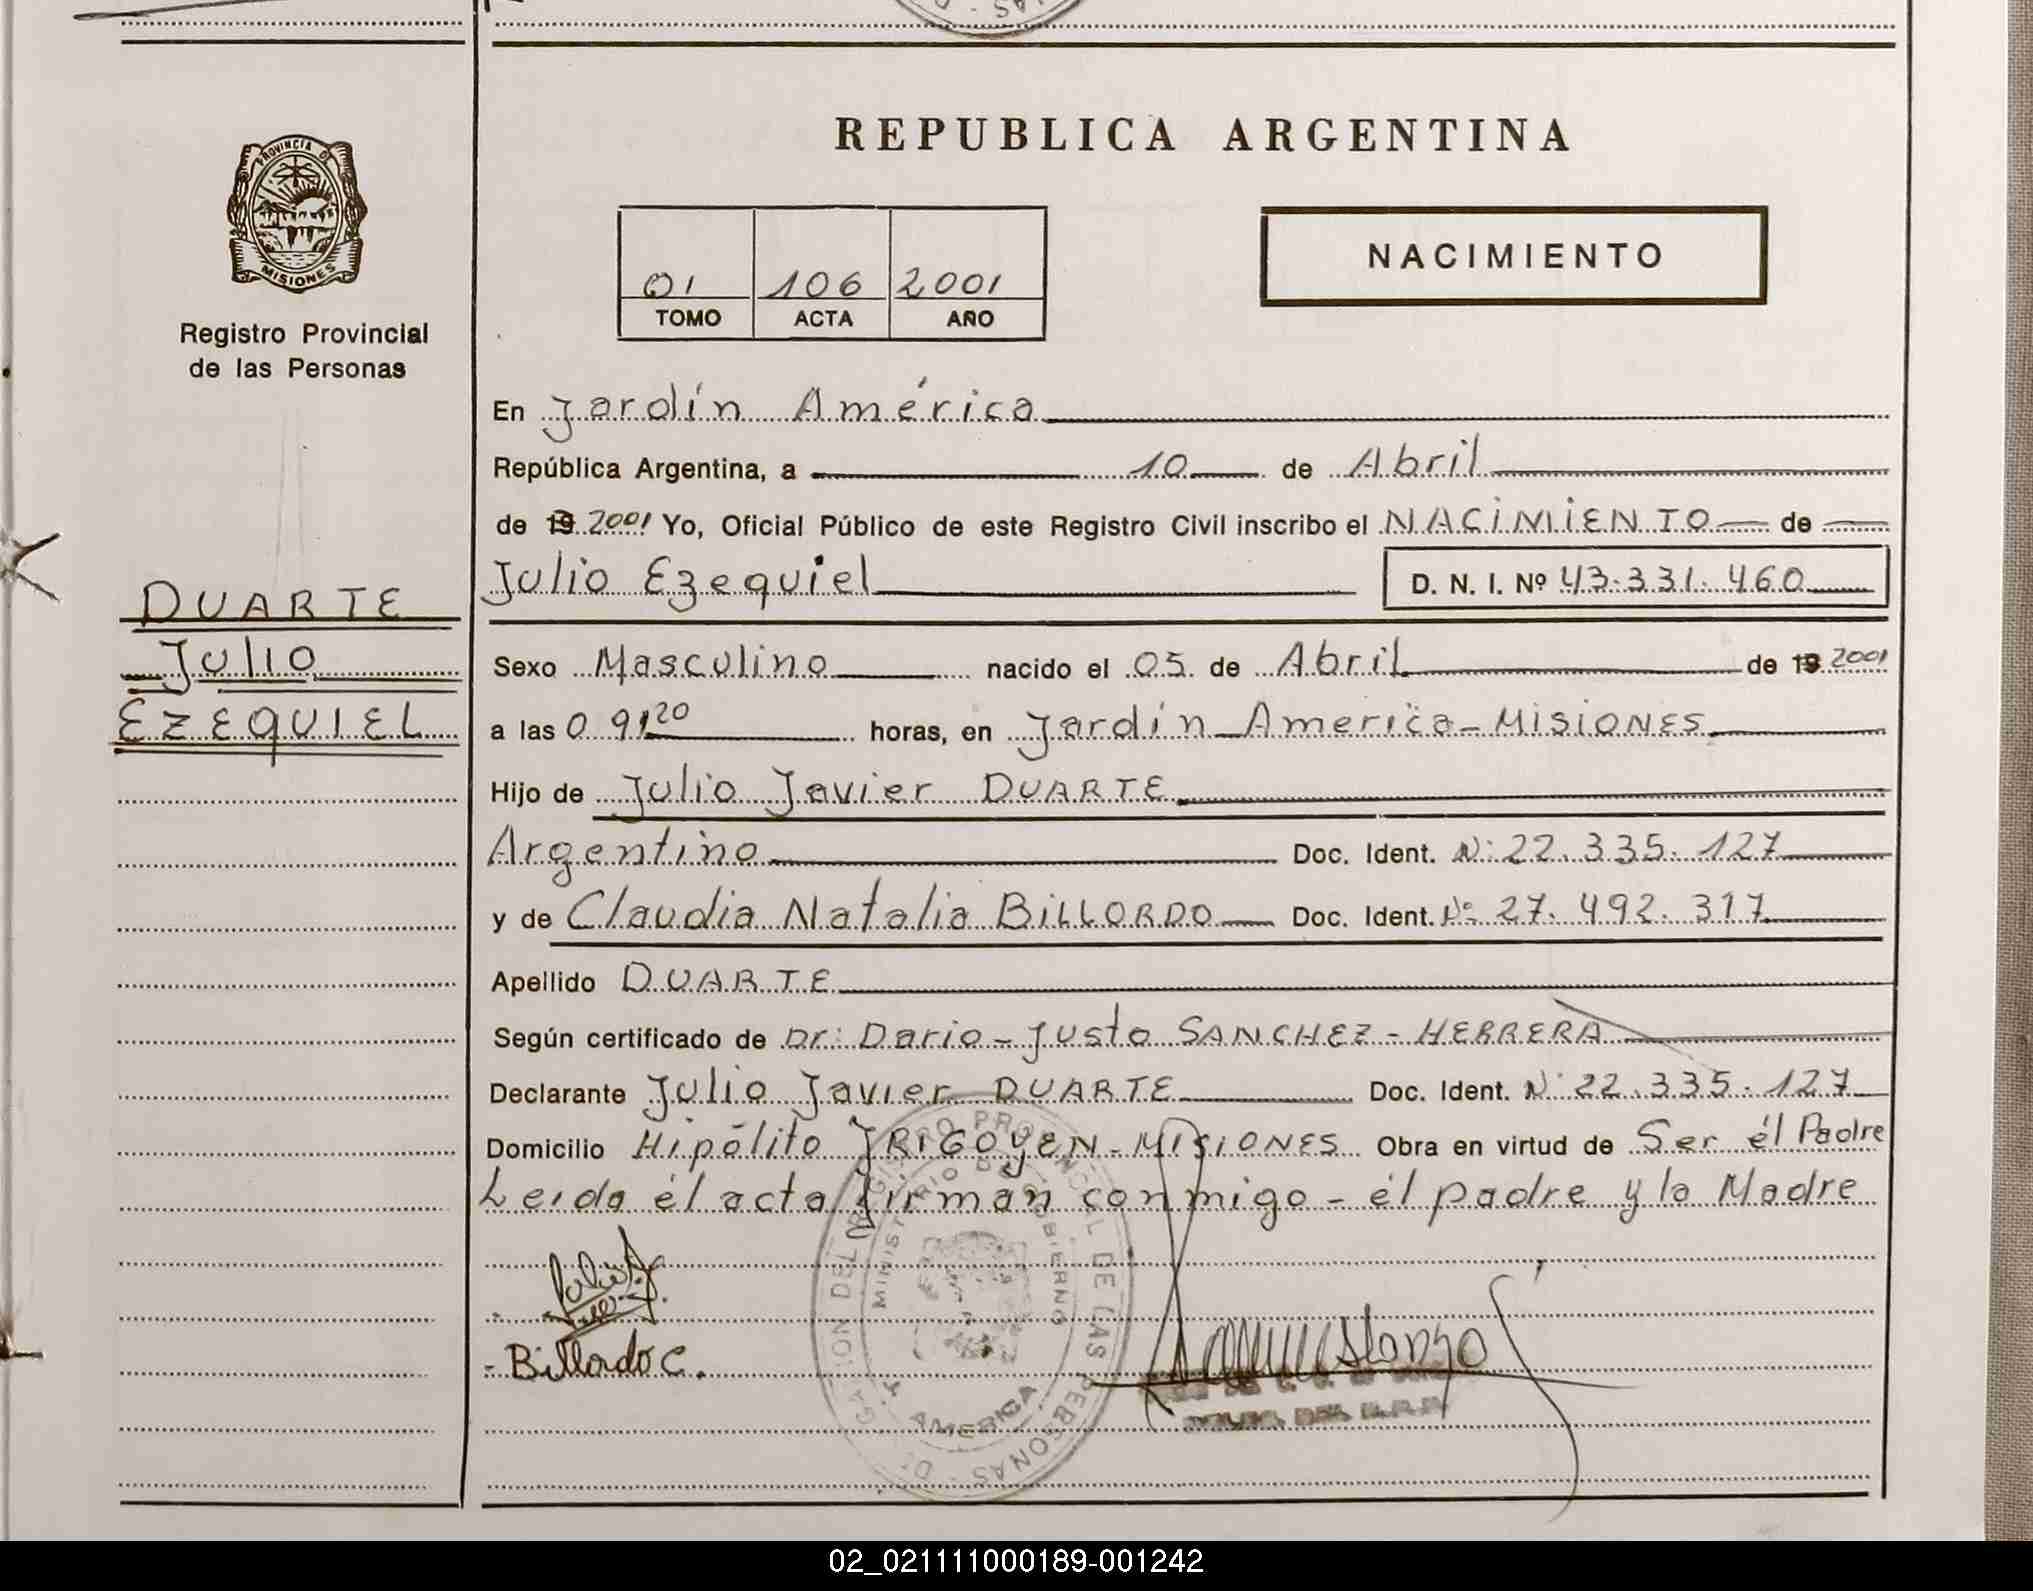 REPUBLICA ARGENTINA
PROVINCIA DE
MISIONES
Registro Provincial
de las Personas
01 106 2001
TOMO ACTA AÑO
NACIMIENTO
DUARTE
Julio
EZEQUIEL
En Jardín América
República Argentina, a 10 de Abril
de 19 2001 Yo, Oficial Público de este Registro Civil inscribo el NACIMIENTO de
Julio Ezequiel D. N. I. Nº 43.331.460
Sexo Masculino nacido el 05 de Abril de 19 2001
a las 09,20 horas, en Jardín America - MISIONES
Hijo de Julio Javier DUARTE
Argentino Doc. Ident. N: 22.335.127
y de Claudia Natalia BILLORDO Doc. Ident. Nº 27.492.317
Apellido DUARTE
Según certificado de Dr: Dario - Justo SANCHEZ - HERRERA
Declarante Julio Javier DUARTE Doc. Ident. N: 22.335.127
Domicilio Hipólito YRIGOYEN - MISIONES Obra en virtud de Ser él Padre
Leida él acta firman conmigo - él padre y la Madre
Billordo C.
DELEGACION DEL REGISTRO PROVINCIAL DE LAS PERSONAS
MINISTERIO DE GOBIERNO
J. AMERICA
02_021111000189-001242